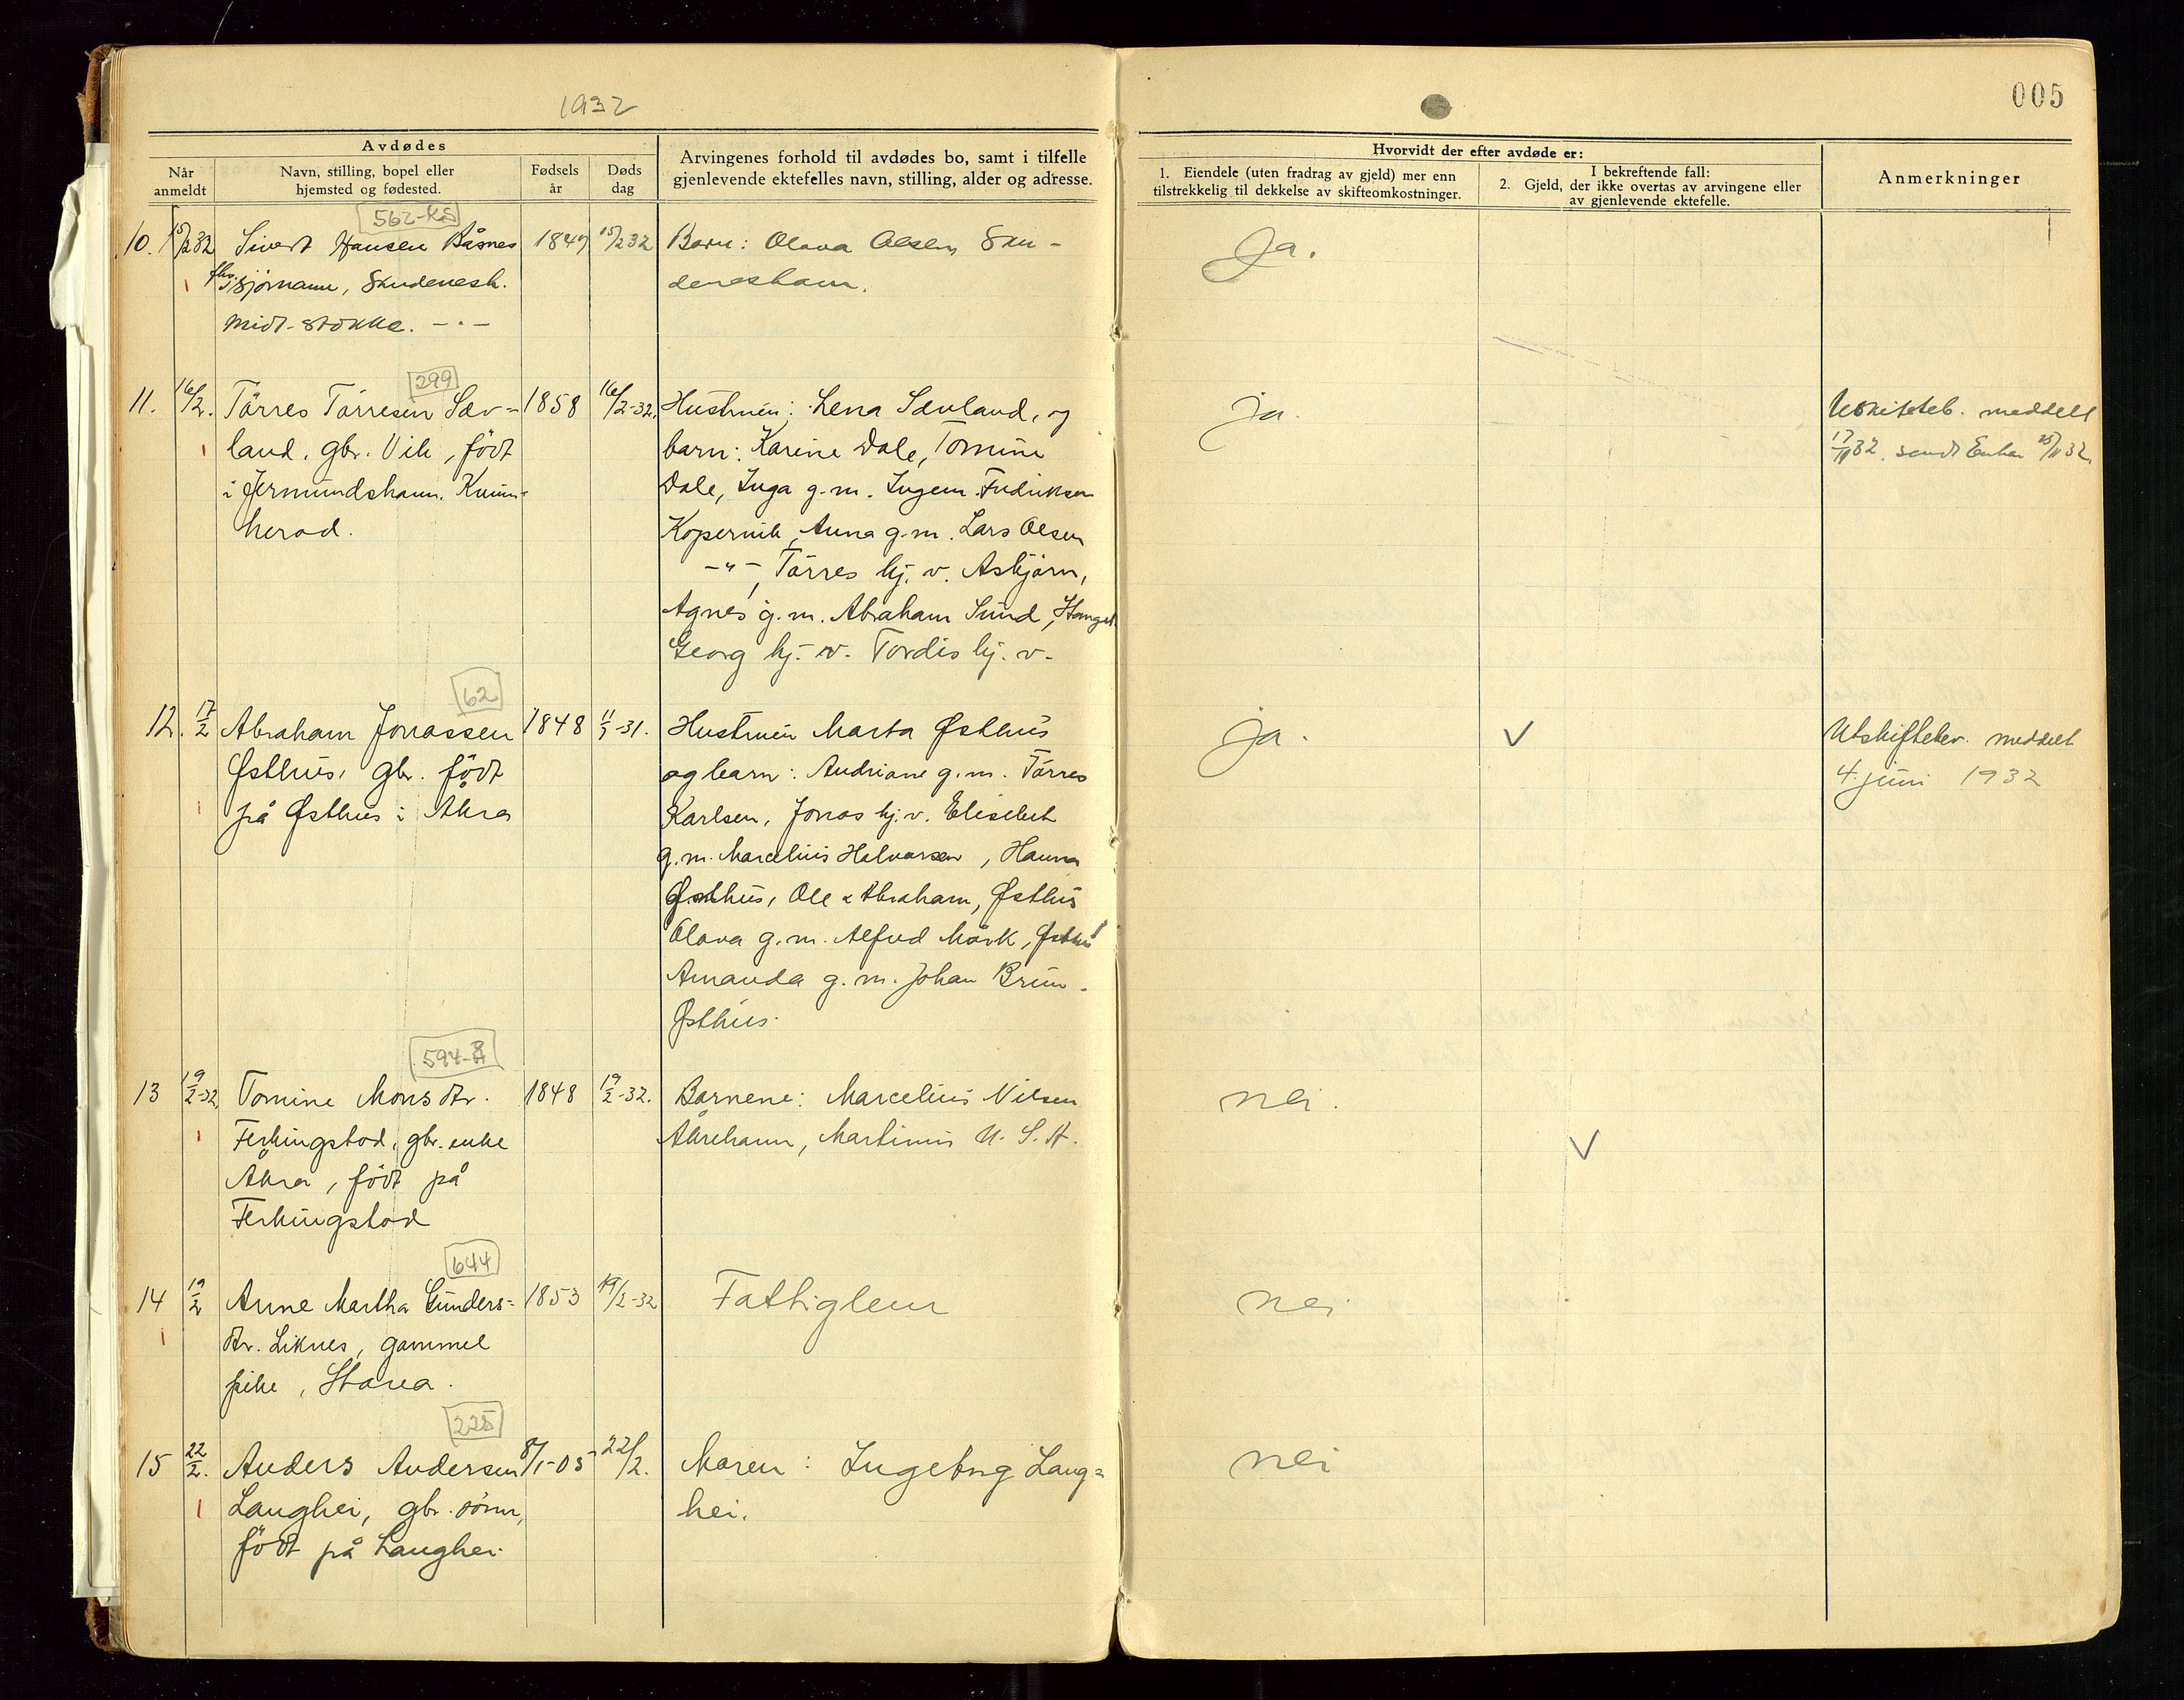 1932
005
Avdødes
Når anmeldt
Navn, stilling, bopel eller hjemsted og fødested.
Fødsels år
Døds dag
Arvingenes forhold til avdødes bo, samt i tilfelle gjenlevende ektefelles navn, stilling, alder og adresse.
Hvorvidt der efter avdøde er:
1. Eiendele (uten fradrag av gjeld) mer enn tilstrekkelig til dekkelse av skifteomkostninger.
I bekreftende fall:
2. Gjeld, der ikke overtas av arvingene eller av gjenlevende ektefelle.
Anmerkninger
10. 15/2 32 Sivert Hansen Båsnes 1847 15/2 32 Barn: Olava Olsen, Sku- Ja.
fhv. sjömann, Skudenesh. deneshavn.
Midt-stokke. - " -
299
11. 16/2. Törres Törresen Sæv- 1858 16/2-32. Hustruen: Lena Sævland, og ja.
land, gbr. Vik, födt barn: Karine Dale, Tomine 17/11 32. sendt Enken 25/11 32.
i Jermundshavn. Kvinn- Dale, Inga g.m. Ingem. Fredriksen
herad. Kopervik, Anna g.m. Lars Olsen
- " -, Törres hj. v. Asbjörn,
Agnes g.m. Abraham Sund,
Georg hj. v. Tordis hj. v.
62
12. 17/2 Abraham Jonassen 1848 -31. Hustruen Marta Østhus ja. V Utskiftebev. meddelt
Østhus, gbr. födt og barn: Andriane g.m. Törres 4. juni 1932
på Østhus i Akra Karlsen, Jonas hj. v. Elisebet
g.m. Marcelius Halvorsen, Hanna
Østhus, Ole & Abraham, Østhus
Olava g.m. Alfred Mörk, Østhus
Amanda g.m. Johan Brun-
Østhus.
13 19/2-32. Tomine Monsdtr. 1848 19/2-32. Barnene: Marcelius Nilsen nei.
Ferkingstad, gbr. enke Åkrehavn, Martinus U.S.A. V
Åkra, födt på
Ferkingstad
644
14 19/2 Anne Martha Gunders- 1853 19/2-32 Fattiglem nei
dtr. Liknes, gammel
pike, Starea.
225
15 22/2. Anders Andersen 8/1-05 22/2. Moren: Ingebrg Lang- nei
Langhei, gbr. sönn, hei.
födt på Langhei.